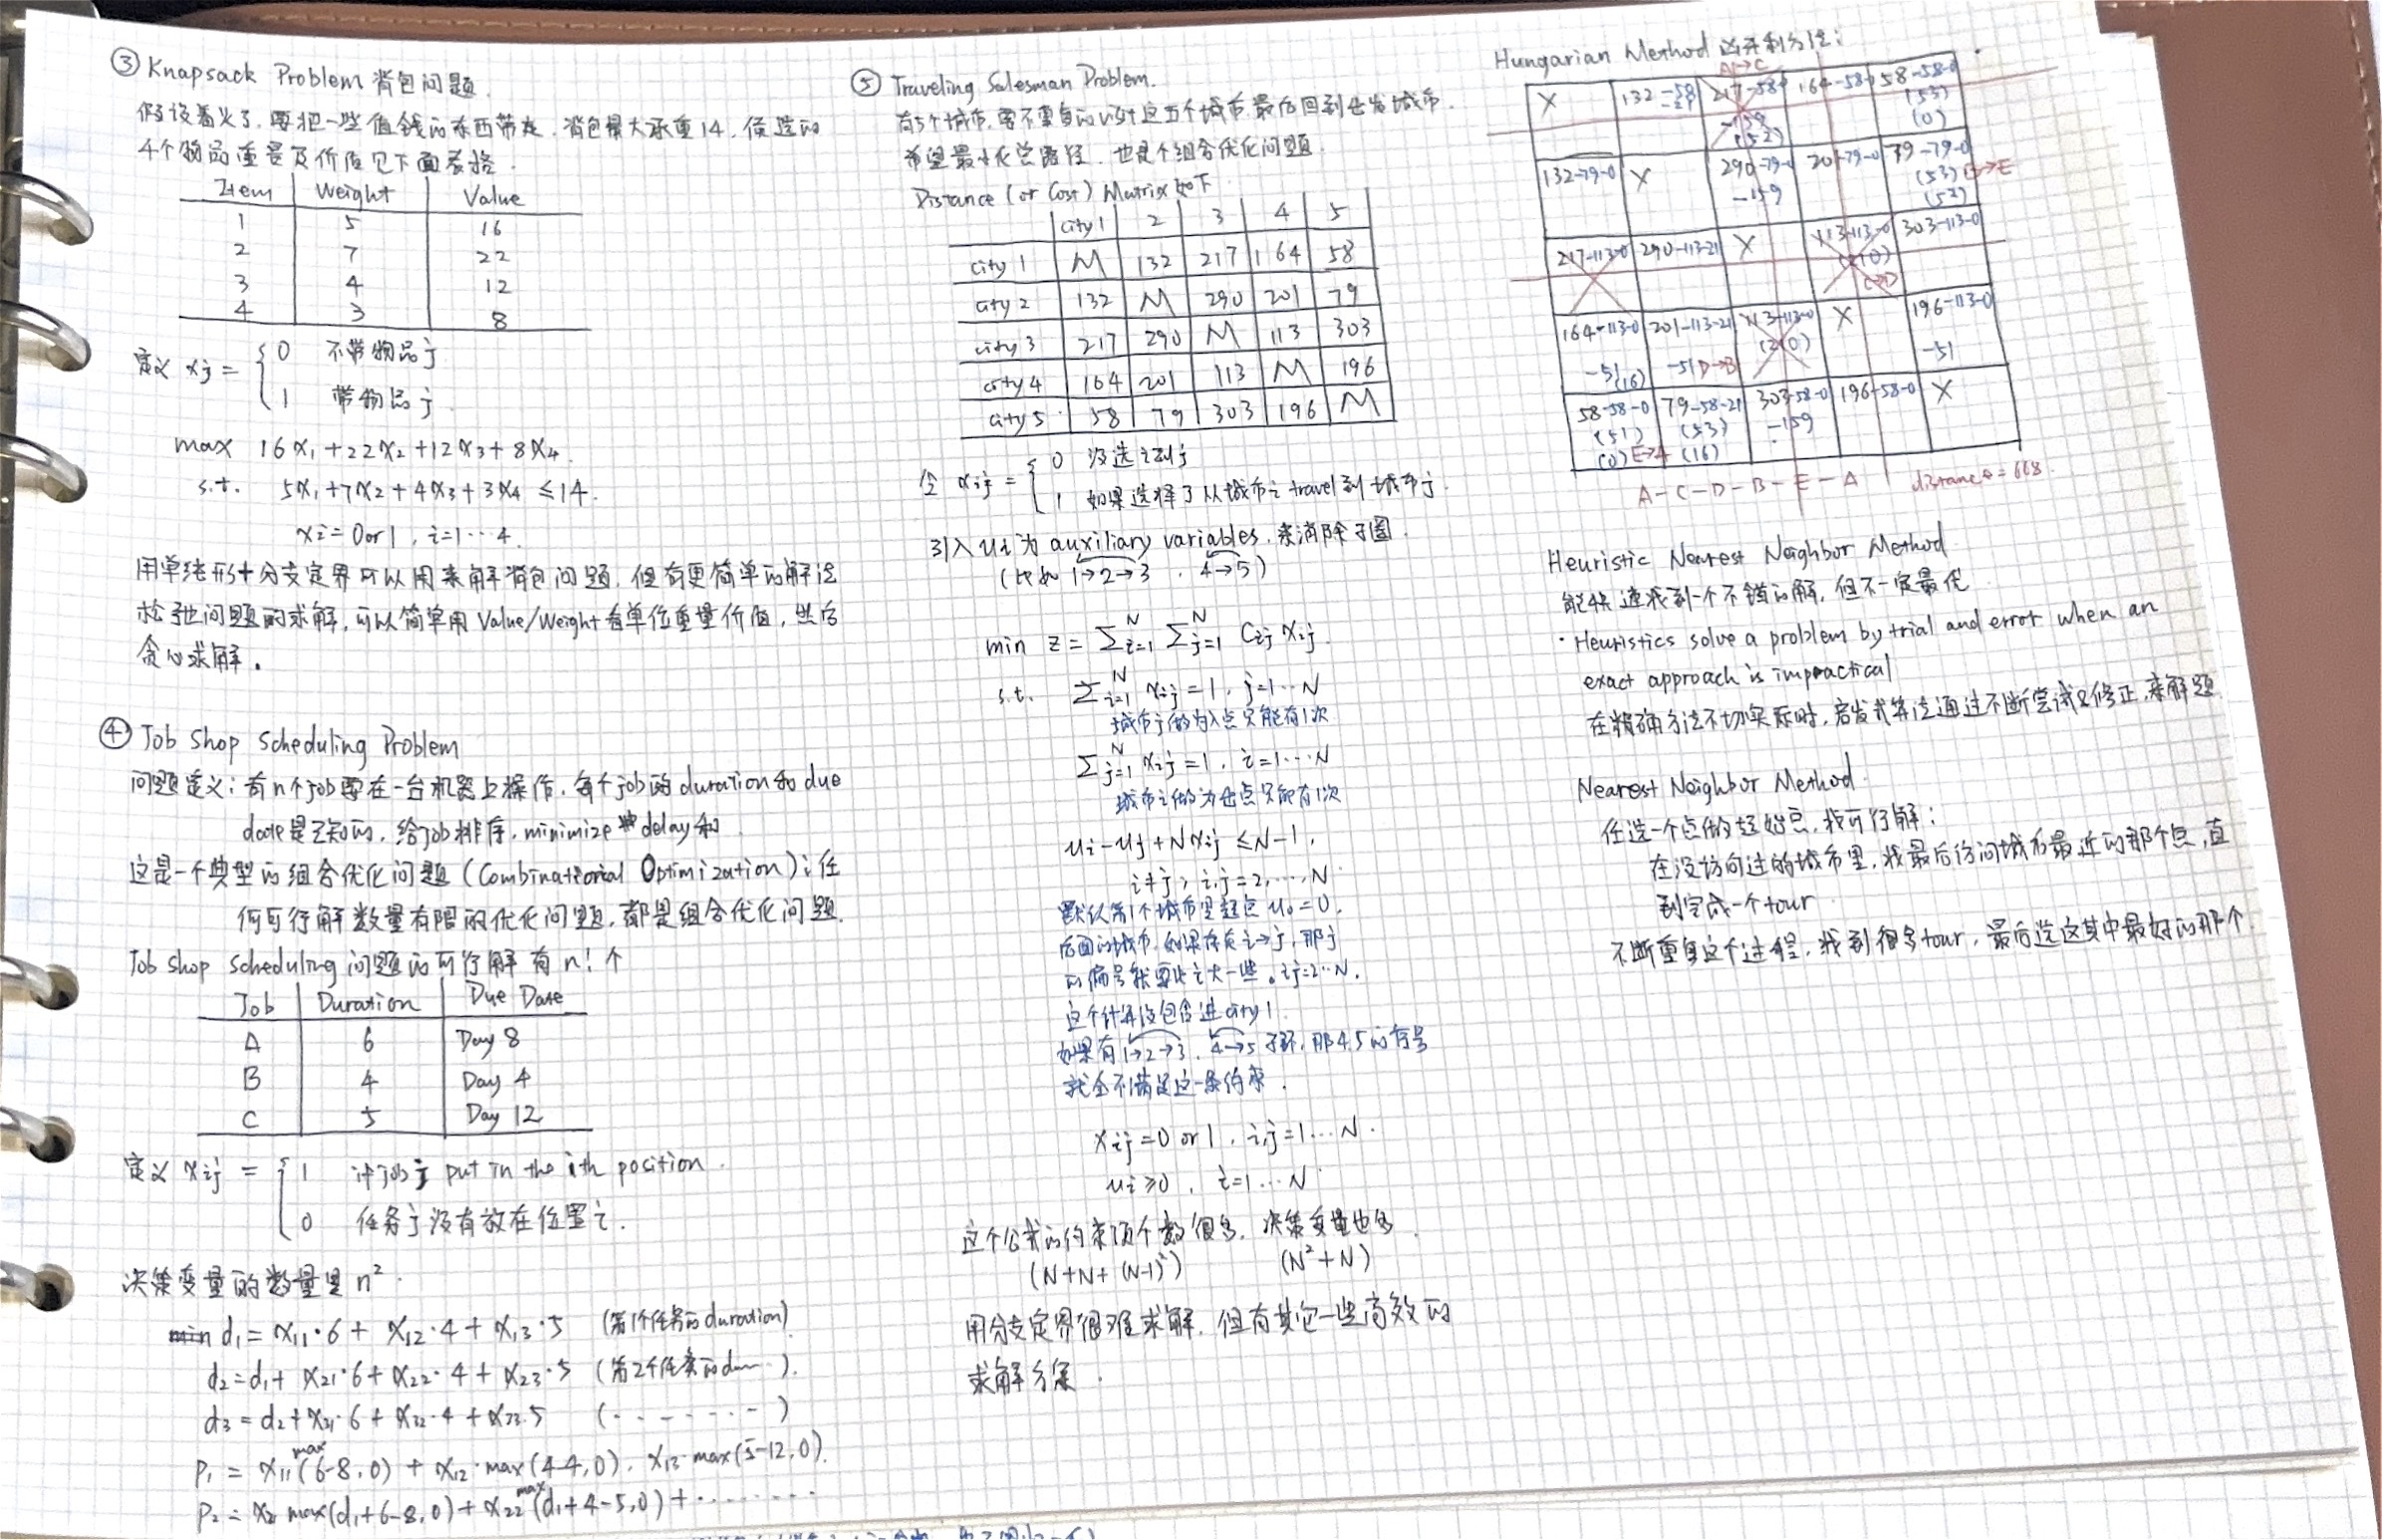 ③ Knapsack Problem 背包问题.
假设着火了,要把一些值钱的东西带走,背包最大承重14,候选的
4个物品重量及价值见下面表格.
Item Weight Value
1 5 16
2 7 22
3 4 12
4 3 8
定义 xj = { 0 不带物品j
1 带物品j
max 16x₁+22x₂+12x₃+8x₄.
s.t. 5x₁+7x₂+4x₃+3x₄ ≤14.
xi=0 or 1, i=1…4.
用单纯形+分支定界可以用来解背包问题,但有更简单的解法
松弛问题的求解,可以简单用 Value/Weight看单位重量价值,然后
贪心求解。
④ Job Shop Scheduling Problem
问题定义:有n个job要在一台机器上操作,每个job的duration和due
date是已知的,给job排序,minimize delay和
这是一个典型的组合优化问题(Combinatorial Optimization):任
何可行解数量有限的优化问题,都是组合优化问题.
Job shop scheduling 问题的可行解有 n! 个
Job Duration Due Date
A 6 Day 8
B 4 Day 4
C 5 Day 12
定义 xij = { 1 if job j put in the ith position.
0 任务j没有放在位置i.
决策变量的数量是 n².
d₁ = x₁₁·6 + x₁₂·4 + x₁₃·5 (第1个任务的duration)
d₂=d₁+ x₂₁·6+ x₂₂·4 + x₂₃·5 (第2个任务的d…).
d₃ = d₂+x₃₁·6 + x₃₂·4 + x₃₃·5 (- - - - - - -)
P₁ = x₁₁max(6-8,0) + x₁₂·max(4-4,0). x₁₃·max(5-12,0).
P₂ = x₂ max(d₁+6-8,0)+ x₂₂max(d₁+4-5,0)+ ………
⑤ Traveling Salesman Problem.
有5个城市,要不重复的visit这五个城市,最后回到出发城市.
希望最小化总路径,也是个组合优化问题.
Distance (or Cost) Matrix如下
city 1 2 3 4 5
city 1 M 132 217 164 58
city 2 132 M 290 201 79
city 3 217 290 M 113 303
city 4 164 201 113 M 196
city 5 58 79 303 196 M
令 xij = { 0 没选i到j
1 如果选择了从城市i travel到城市j.
引入ui为auxiliary variables,来消除子圈.
(比如 1→2→3, 4→5)
min z = Σᴺi=1 Σᴺj=1 Cij xij.
s.t. Σᴺi=1 xij=1, j=1…N
城市j做为入点只能有1次
Σᴺj=1 xij=1, i=1…N
城市i做为出点只能有1次
ui-uj+Nxij ≤N-1,
i≠j, i,j=2,…,N
默认第1个城市是起点 u₀=0,
后面的城市,如果存在i→j,那j
的编号就要比i大一些。i,j=2…N.
这个计算没包含进city1.
如果有1→2→3, 4→5子环,那4,5的序号
就会不满足这一条约束.
xij=0 or 1, i,j=1…N.
ui≥0, i=1…N
这个公式的约束项个数很多,决策变量也多.
(N+N+(N-1)²) (N²+N)
用分支定界很难求解,但有其它一些高效的
求解方案.
Hungarian Method 匈牙利方法:
A→C
X 132-58-21 217-58-0 164-58-0 58-58-0
-159 (53)
(52) (0)
132-79-0 X 290-79-0 201-79-0 79-79-0
-159 (53) B→E
(52)
217-113-0 290-113-21 X 113-113-0 303-113-0
(210)
C→D
164-113-0 201-113-21 113-113-0 X 196-113-0
(210)
-51(16) -51 D→B -51
58-58-0 79-58-21 303-58-0 196-58-0 X
(51) (53) -159
(0) E→A (16)
A-C-D-B-E-A distance=668.
Heuristic Nearest Neighbor Method
能快速找到一个不错的解,但不一定最优
· Heuristics solve a problem by trial and error when an
exact approach is impractical
在精确方法不切实际时,启发式算法通过不断尝试及修正,来解题
Nearest Neighbor Method.
任选一个点做起始点,找可行解:
在没访问过的城市里,找最后访问城市最近的那个点,直
到完成一个tour
不断重复这个过程,找到很多tour,最后选这其中最好的那个.